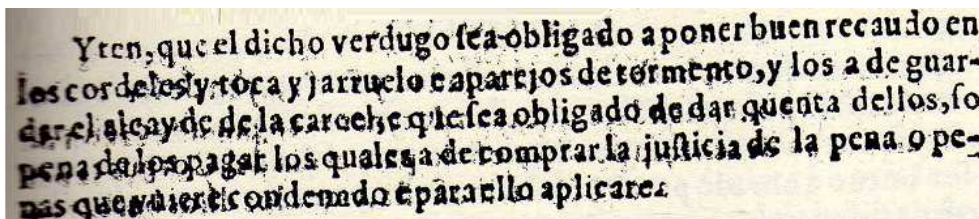 Yten, que el dicho verdugo sea obligado a poner buen recaudo en
los cordeles y toca y jarruelo e aparejos de tormento, y los a de guar-
dar el alcayde de la carcel, e q̃ le sea obligado de dar quenta dellos, so
pena de los pagar, los quales a de comprar la justicia de la pena o pe-
nas que uviere condenado e para ello aplicare.